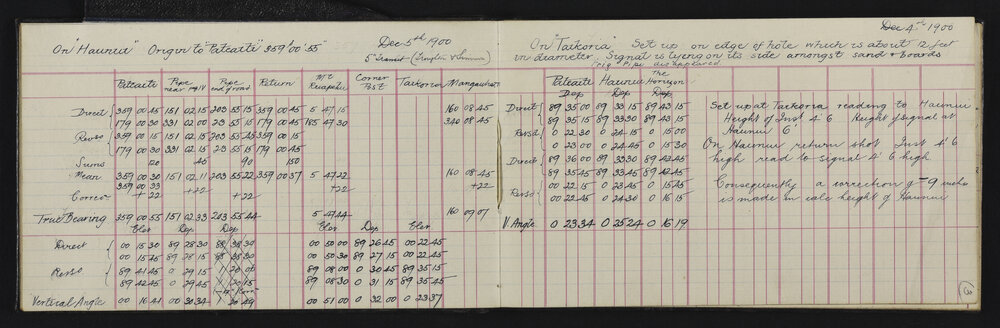 On "Haunui" Origin to "Patearite" 359°00'55" Dec 5th 1900
5" Transit
Patearite Pipe near Pipe end of road Return Mt Corner Post Taikoria Mangawhata
Direct 359 00 45 151 02 15 203 55 15 359 00 45 5 47 15 160 08 45
179 00 30 331 02 00 23 55 15 179 00 45 185 47 30 340 08 45
Revsd 359 00 15 151 02 15 203 55 45 359 00 15
179 00 30 331 02 15 23 55 15 179 00 45
Sums 120 45 90 150
Mean 359 00 30 151 02 11 203 55 22 359 00 37 5 47 22 160 08 45
359 00 33 +22 +22 +22
Correc + 22 + 22
True Bearing 359 00 55 151 02 33 203 55 44 5 47 44 160 09 07
Elev Dep Dep Elev Dep Elev
Direct 00 15 30 89 28 30 00 50 00 89 26 45 00 22 45
00 15 45 89 28 15 00 50 30 89 27 15 00 22 45
Revsd 89 41 45 0 29 15 89 08 00 0 30 45 89 35 15
89 42 45 0 29 45 89 08 30 0 31 15 89 35 45
Vertical Angle 00 16 41 00 30 34 00 51 00 0 32 00 0 23 37
Dec 4th 1900
On "Taikoria" Set up on edge of hole which is about 12 feet
in diameter Signal is lying on its side amongst sand & boards
Pipe disappeared
Patearite Haunui The Horizon
Dep Dep Dep
Direct 89 35 00 89 33 15 89 43 15 Set up at Taikoria reading to Haunui
89 35 15 89 33 30 89 43 15 Height of Inst 4' 6 Height of signal at
Revsd 0 22 30 0 24 15 0 15 00 Haunui 6'
0 23 00 0 24 45 0 15 30 On Haunui return shot Inst 4' 6
Direct 89 36 00 89 33 30 89 42 45 high read to signal 4' 6 high
89 35 45 89 33 45 89 42 45
Revsd 00 22 15 0 23 45 0 15 45 Consequently a correction of - 9 inches
00 22 45 0 24 30 0 16 15 is made in calc height of Haunui
V. Angle 0 23 34 0 25 24 0 16 19
3